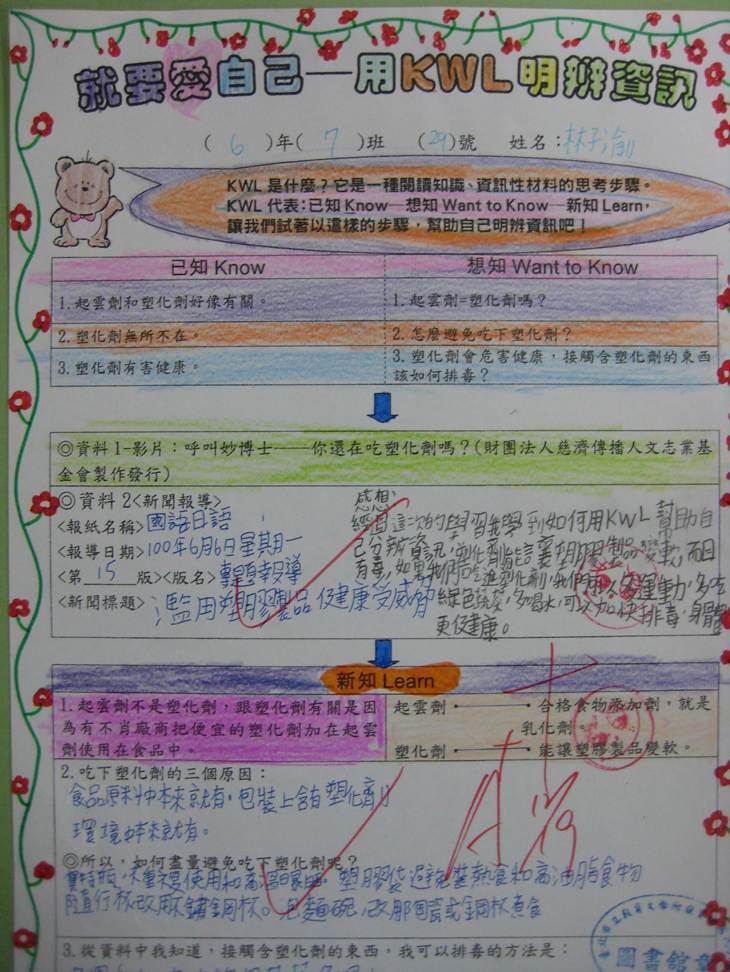 就要愛自己─用KWL明辨資訊
( 6 )年( 7 )班 (29)號 姓名：林子渝
KWL 是什麼？它是一種閱讀知識、資訊性材料的思考步驟。
KWL 代表：已知 Know─想知 Want to Know─新知 Learn，
讓我們試著以這樣的步驟，幫助自己明辨資訊吧！
已知 Know
想知 Want to Know
1.起雲劑和塑化劑好像有關。
1.起雲劑=塑化劑嗎？
2.塑化劑無所不在。
2.怎麼避免吃下塑化劑？
3.塑化劑有害健康。
3.塑化劑會危害健康，接觸含塑化劑的東西
該如何排毒？
◎資料1-影片：呼叫妙博士──你還在吃塑化劑嗎？(財團法人慈濟傳播人文志業基
金會製作發行)
◎資料2<新聞報導>
<報紙名稱>國語日語
<報導日期>100年6月6日星期一
<第 15 版><版名>專題報導
<新聞標題>濫用塑膠製品 健康受威脅
感想：
經過這次的學習我學到如何用KWL幫助自
己分辨資訊，塑化劑能讓塑膠製品變軟，而且
有毒，如果我們吃進塑化劑，我們要多運動，多吃
綠色蔬菜，多喝水，可以加快排毒，身體
更健康。
新知 Learn
1.起雲劑不是塑化劑，跟塑化劑有關是因
為有不肖廠商把便宜的塑化劑加在起雲
劑使用在食品中。
起雲劑 合格食物添加劑，就是
乳化劑
塑化劑 能讓塑膠製品變軟。
2.吃下塑化劑的三個原因：
食品原料中本來就有。包裝上含有塑化劑
環境中本來就有。
◎所以，如何盡量避免吃下塑化劑呢？
寶特瓶，不重複使用和高溫曝曬。塑膠袋避免裝熱食和高油脂食物
隨行杯改用不鏽鋼杯。泡麵碗，改用瓷或鋼杯煮食
A
3.從資料中我知道，接觸含塑化劑的東西，我可以排毒的方法是：
圖書館章